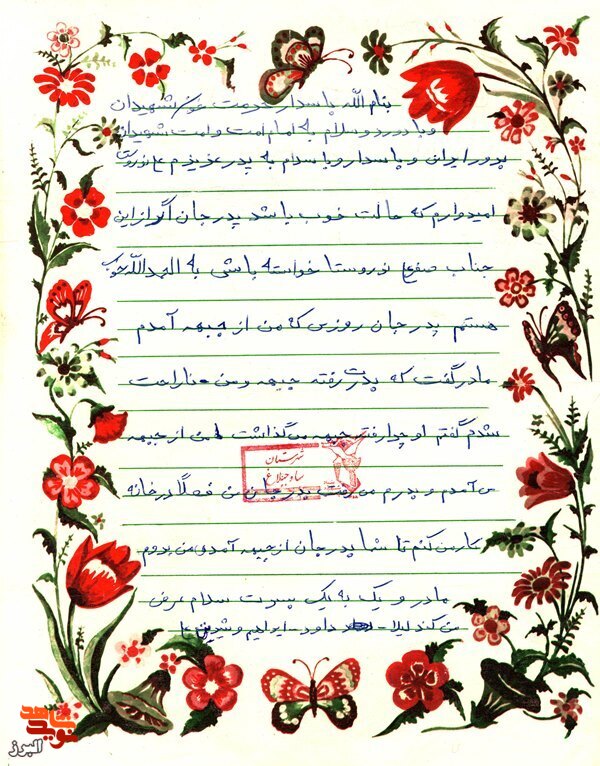 بنام الله پاسدار حرمت خون شهیدان
و با درود و سلام به امام امت و امت شهیدان
پرور ایران و پاسدار و با سلام به پدر عزیزم
امیدوارم که حالت خوب باشد پدر جان اگر از این
جناب صفرعلی نوروستا خواسته باشی به الحمدالله خوب
هستم پدر جان روزی که من از جبهه آمدم
مادر گفت که پدرت رفته جبهه و من ناراحت
شدم گفتم او چرا رفته جبهه می گذاشت من از جبهه
می آمدم و پدرم می رفت پدر جان من فعلاً در خانه
کار می کنم تا شما پدر جان از جبهه آمدی من بروم
مادر و یک به یک پسرت سلام عرض
می کند لیلا - داود - ابراهیم و
شهرستان
ساوجبلاغ
نوید شاهد
البرز